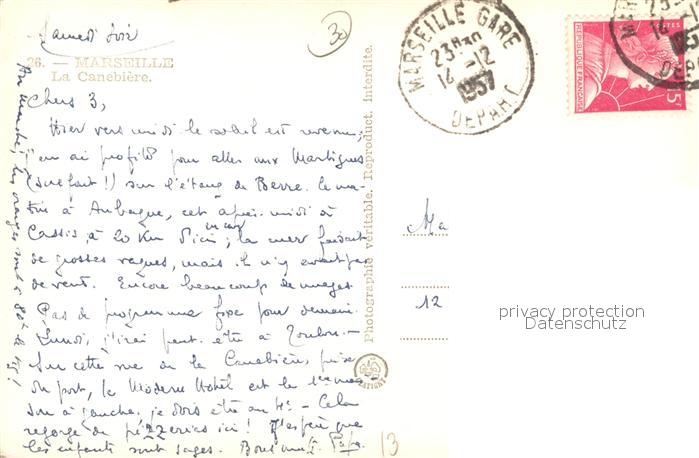 Samedi soir
26. — MARSEILLE
La Canebière.
Chers 3,
Hier vers midi le soleil est revenu,
j'en ai profité pour aller aux Martigues
(surfait !) sur l'étang de Berre. Ce ma-
tin à Aubagne, cet après-midi à
Cassis, à 20 km d'ici ; la mer faisait
de grosses vagues, mais il n'y avait pas
de vent. Encore beaucoup de nuages
Pas de programme fixe pour demain.
Lundi, j'irai peut-être à Toulon. —
Sur cette vue de la Canebière, prise
du port, le Moderne Hôtel est la 1ère mai-
son à gauche. je dois être au 4e — Cela
regorge de pizzerias ici ! J'espère que
les enfants sont sages. Bons Papa.
Au marché, les oranges sont à 80 le kg !
30
Photographie véritable. Reproduct. interdite.
MARSEILLE GARE
23H30
14-12
1957
DEPART
REPUBLIQUE FRANÇAISE
POSTES
15F
23
14
1957
DEPART
Ma
12
privacy protection
Datenschutz
13